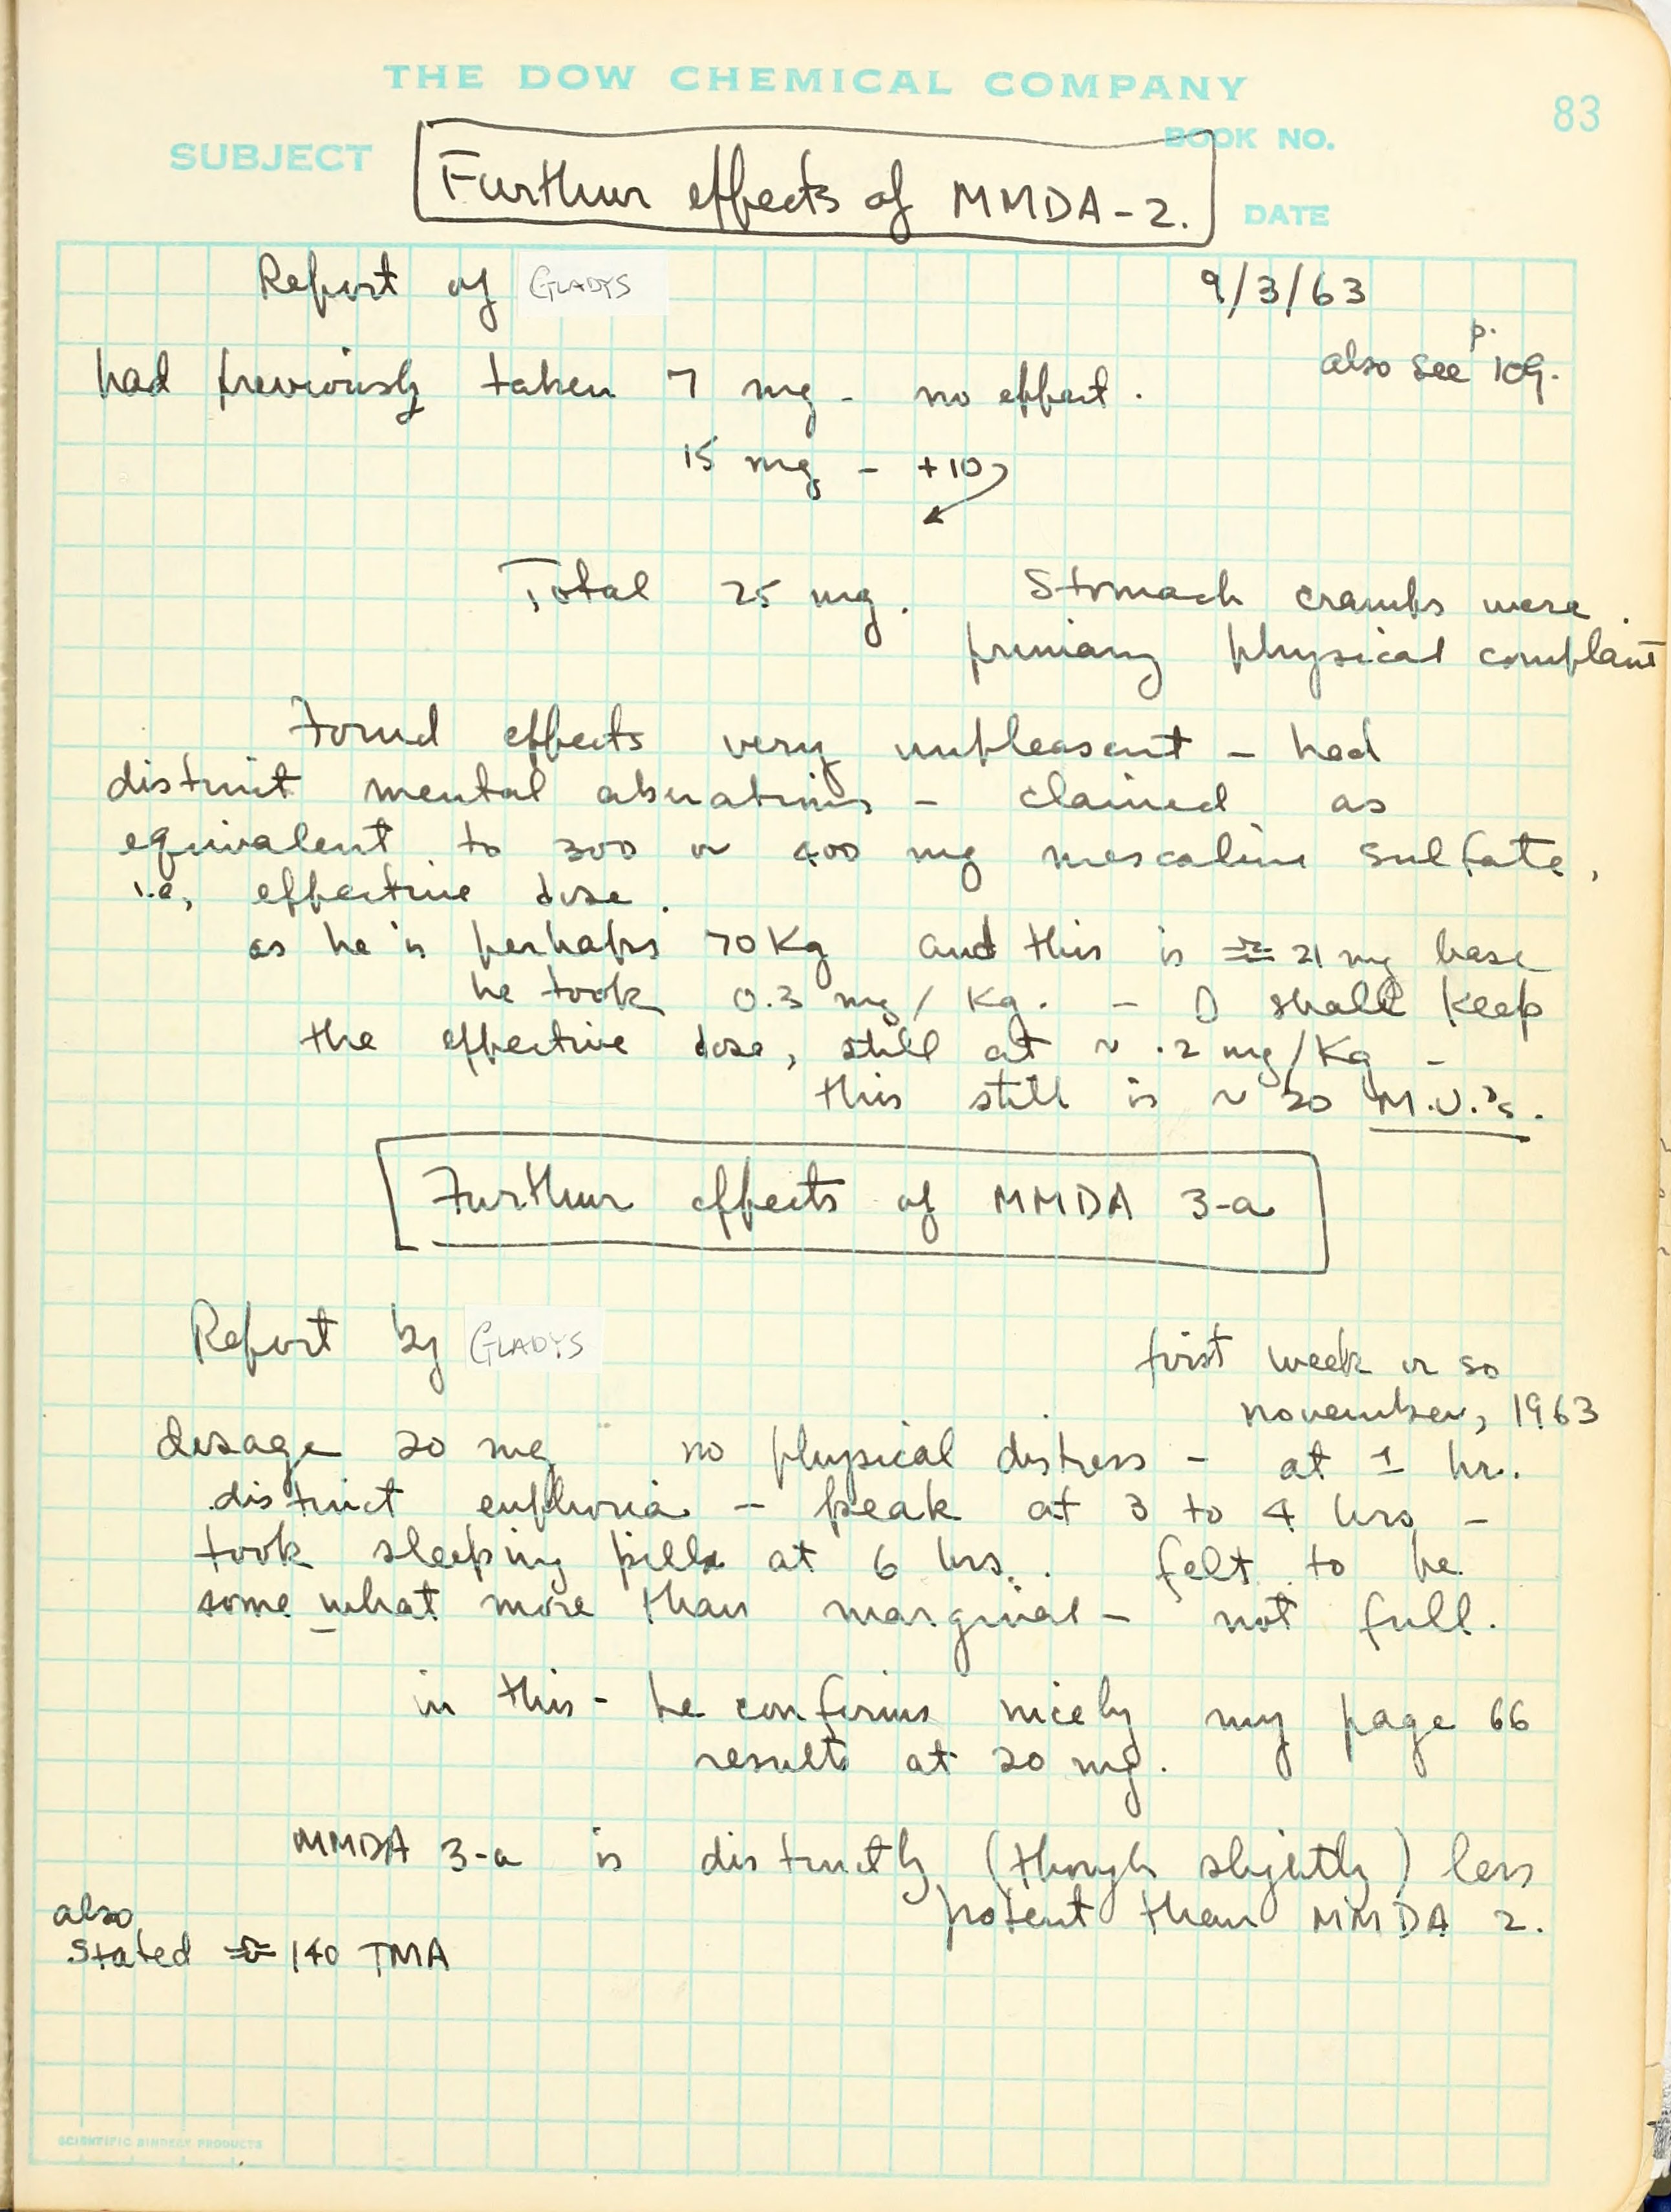 THE DOW CHEMICAL COMPANY
83
SUBJECT
BOOK NO.
Furthur effects of MMDA-2.
DATE
Report of GLADYS
9/3/63
also see p. 109.
had previously taken 7 mg - no effect.
15 mg - +10
Total 25 mg. Stomach cramps were
primary physical complaint
Found effects very unpleasant - had
distinct mental aberations - claimed as
equivalent to 300 or 400 mg mescaline sulfate,
i.e, effective dose.
as he is perhaps 70 Kg and this is ≅ 21 mg base
he took 0.3 mg/Kg. - I shall keep
the effective dose, still at ~ .2 mg/Kg -
this still is ~ 20 M.U.'s.
Furthur effects of MMDA 3-a
Report by GLADYS
first week or so
november, 1963
dosage 20 mg no physical distress - at 1 hr.
distinct euphoria - peak at 3 to 4 hrs -
took sleeping pills at 6 hrs. felt to be
some what more than marginal - not full.
in this - he confirms nicely my page 66
results at 20 mg.
MMDA 3-a is distinctly (though slightly) less
potent than MMDA 2.
also
stated ≅ 140 TMA
SCIENTIFIC BINDERY PRODUCTS